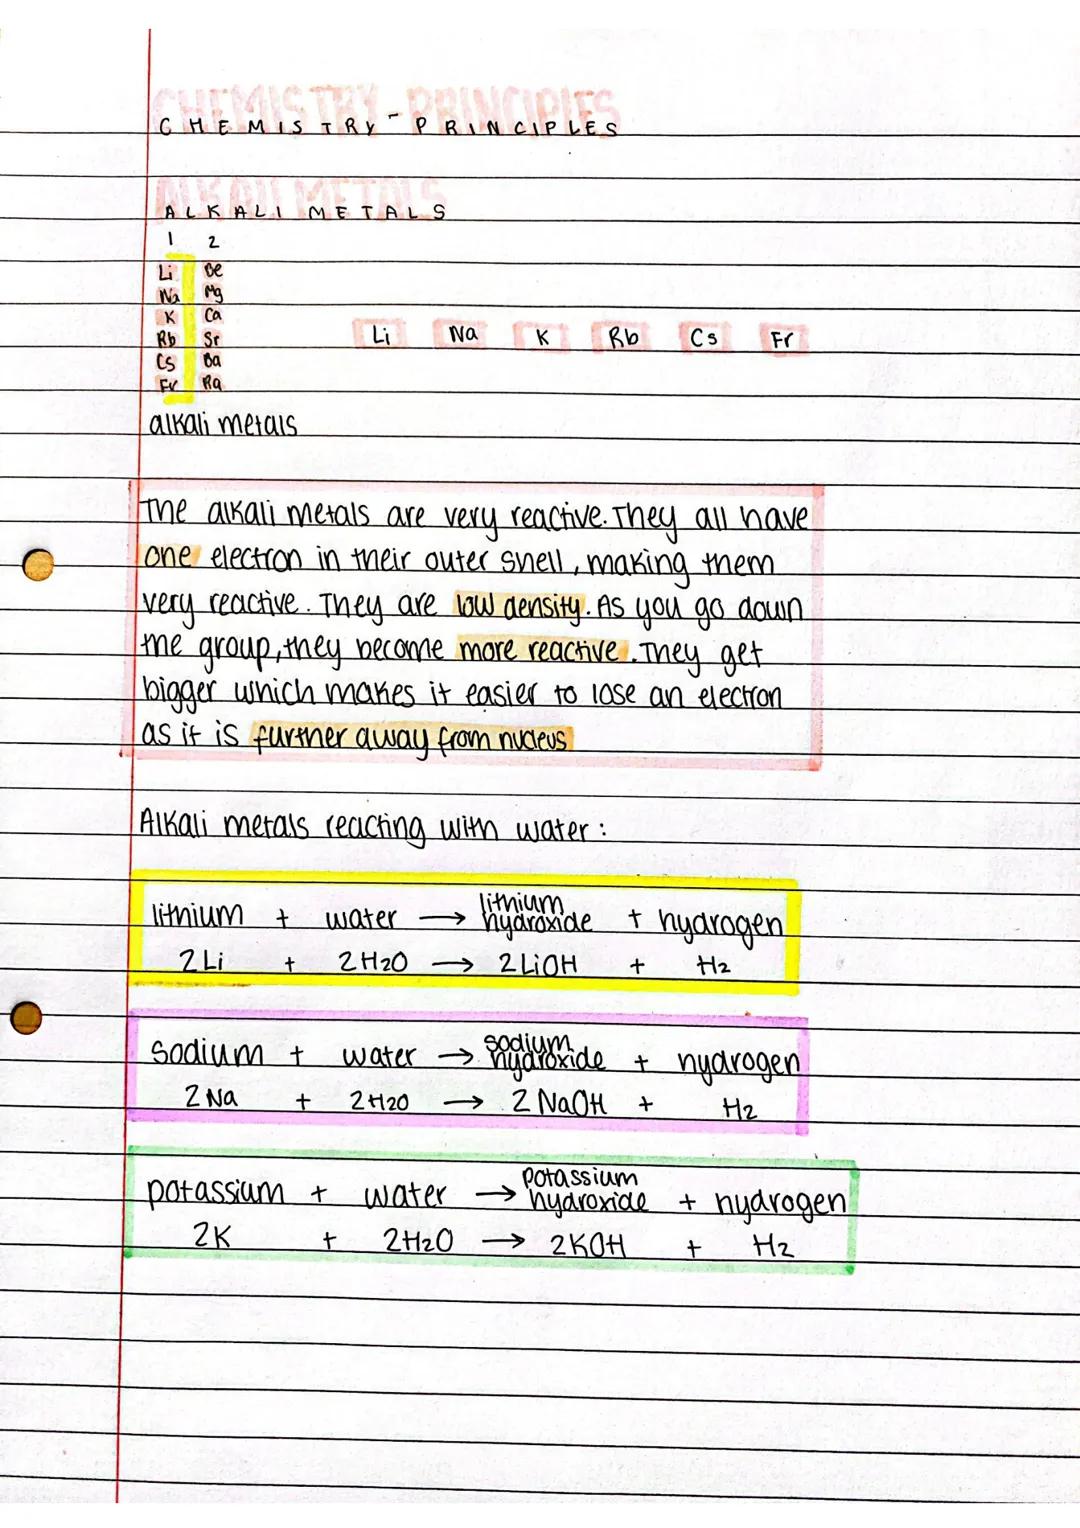 CHEMISTRY-PRINCIPLES
CHEMISTRY-PRINCIPLES
ALKALI METALS
ALKALI METALS
1 2
Li Be
Na Mg
K Ca
Rb Sr
Cs Ba
Fr Ra
Li Na K Rb Cs Fr
alkali metals
The alkali metals are very reactive. They all have
one electron in their outer shell, making them
very reactive. They are low density. As you go down
the group, they become more reactive. They get
bigger which makes it easier to lose an electron
as it is further away from nucleus
Alkali metals reacting with water:
lithium + water → lithium hydroxide + hydrogen
2Li + 2H2O → 2LiOH + H2
sodium + water → sodium hydroxide + hydrogen
2Na + 2H2O → 2NaOH + H2
potassium + water → potassium hydroxide + hydrogen
2K + 2H2O → 2KOH + H2